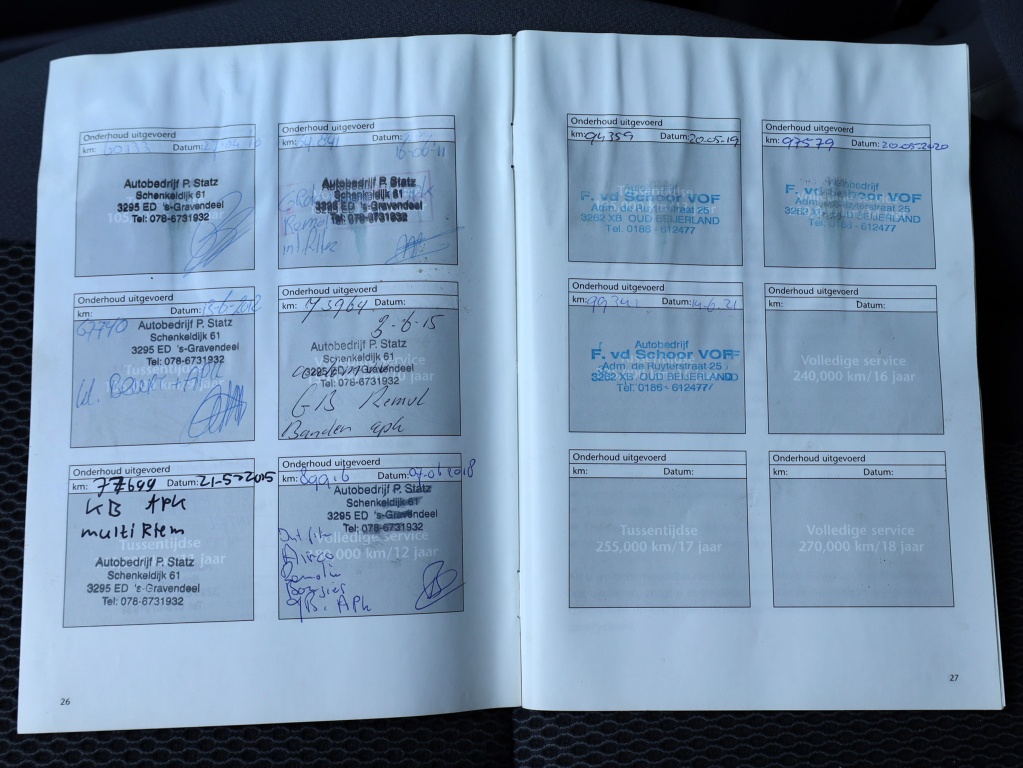 Onderhoud uitgevoerd
km: Datum:
Autobedrijf P. Statz
Schenkeldijk 61
3295 ED 's-Gravendeel
Tel: 078-6731932
Onderhoud uitgevoerd
km: Datum:
16-06-11
Autobedrijf P. Statz
Schenkeldijk 61
3295 ED 's-Gravendeel
Tel: 078-6731932
Onderhoud uitgevoerd
km: Datum: 15-6-2012
67740
Autobedrijf P. Statz
Schenkeldijk 61
3295 ED 's-Gravendeel
Tel: 078-6731932
kl. Beurt + APK
Onderhoud uitgevoerd
km: 73964 Datum:
3-6-15
Autobedrijf P. Statz
Schenkeldijk 61
3295 ED 's-Gravendeel
Tel: 078-6731932
GB Remol
Banden apk
Onderhoud uitgevoerd
km: 77644 Datum: 21-5-2015
KB APK
multi Riem
Tussentijdse
Autobedrijf P. Statz
Schenkeldijk 61
3295 ED 's-Gravendeel
Tel: 078-6731932
Onderhoud uitgevoerd
km: Datum:
Autobedrijf P. Statz
Schenkeldijk 61
3295 ED 's-Gravendeel
Tel: 078-6731932
km/12 jaar
Airco
Bougies
APK
26
Onderhoud uitgevoerd
km: 94359 Datum: 20-05-19
Tussentijdse
F. vd Schoor VOF
Adm. de Ruyterstraat 25
3262 XB OUD BEIJERLAND
Tel. 0186 - 612477
Onderhoud uitgevoerd
km: 97579 Datum: 20-05-2020
Autobedrijf
F. vd Schoor VOF
Adm. de Ruyterstraat 25
3262 XB OUD BEIJERLAND
Tel. 0186 - 612477
Onderhoud uitgevoerd
km: 99341 Datum: 14-6-21
Autobedrijf
F. vd Schoor VOF
Adm. de Ruyterstraat 25
3262 XB OUD BEIJERLAND
Tel. 0186 - 612477
Onderhoud uitgevoerd
km: Datum:
Volledige service
240,000 km/16 jaar
Onderhoud uitgevoerd
km: Datum:
Tussentijdse
255,000 km/17 jaar
Onderhoud uitgevoerd
km: Datum:
Volledige service
270,000 km/18 jaar
27